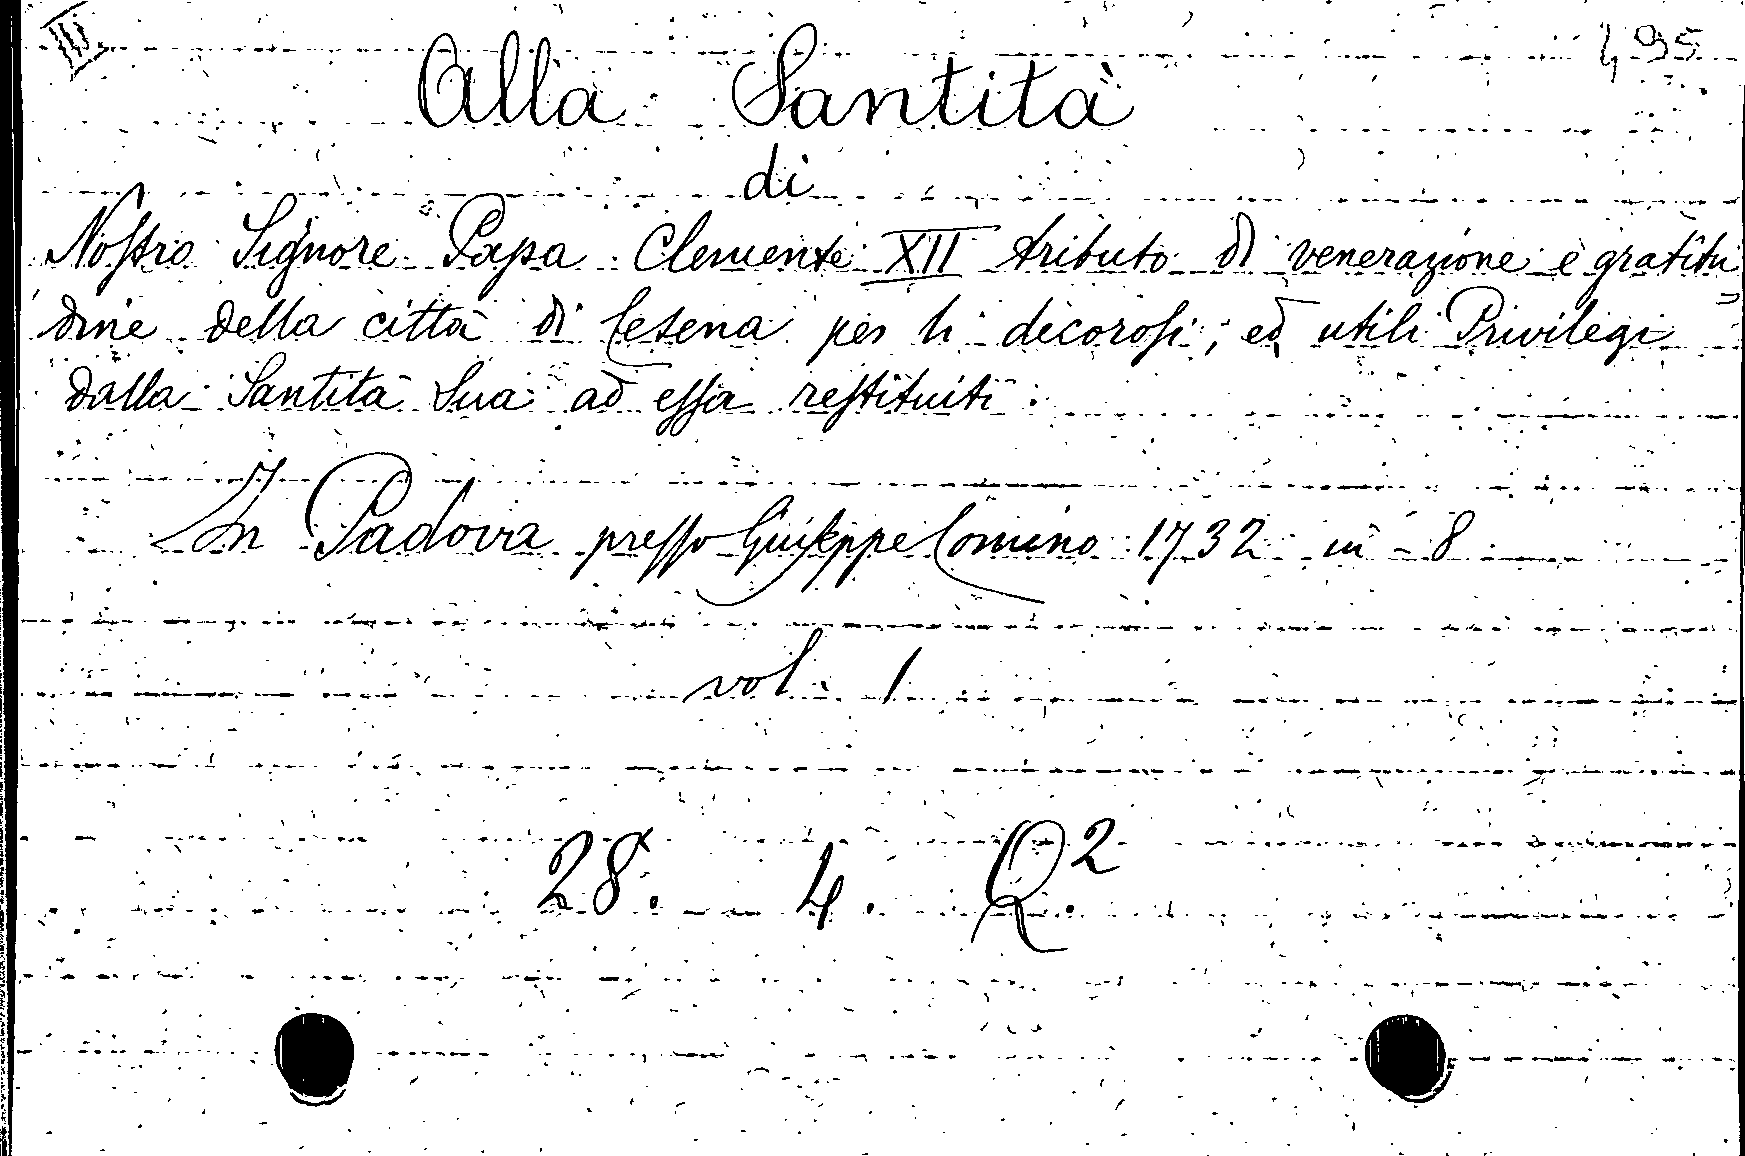 III
495
Alla Santità
di
Nostro Signore Papa Clemente XII tributo di venerazione e gratitu
dine della città di Cesena per li decorosi, ed utili Privilegi
dalla Santità Sua ad essa restituiti.
In Padova presso Giuseppe Comino 1732 in - 8
vol. 1
28. 4. Q²